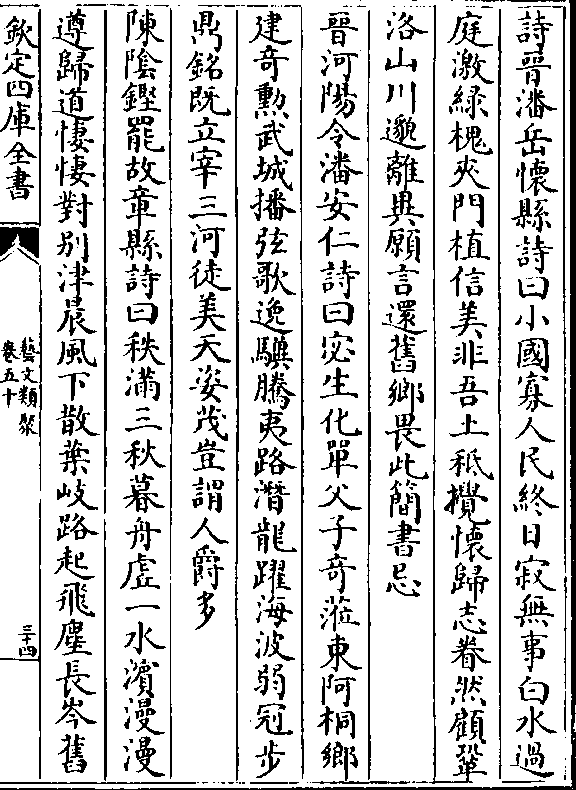 詩晉潘岳懷縣詩曰小國寡人民終日寂無事白水過
庭激緑槐夾門植信美非吾土秪攪懷歸志眷然顧鞏
洛山川邈離異願言還舊鄉畏此簡書忌
晉河陽令潘安仁詩曰宓生化單父子奇涖東阿桐鄉
建奇勲武城播弦歌逸驥騰夷路潛龍躍海波弱冠步
鼎銘既立宰三河徒美天姿茂豈謂人爵多
陳隂鏗罷故章縣詩曰秩滿三秋暮舟虛一水濱漫漫
遵歸道悽悽對别津晨風下散葉岐路起飛塵長岑舊
欽定四庫全書
藝文類聚
卷五十
三十四